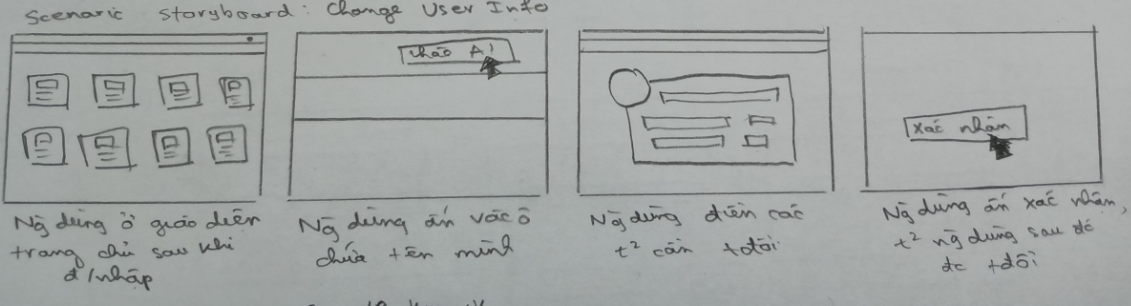 Scenaric storyboard: Change User Info
chào A!
xác nhận
Ng dùng ở giao diện
trang chủ sau khi
đ/nhập
Ng dùng ấn vào ô
chứa tên mình
Ng dùng điền các
t² cần tđổi
Ng dùng ấn xác nhận,
t² ng dùng sau đó
đc tđổi